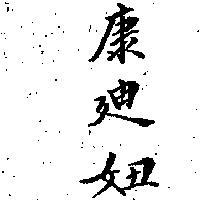 康廸妞